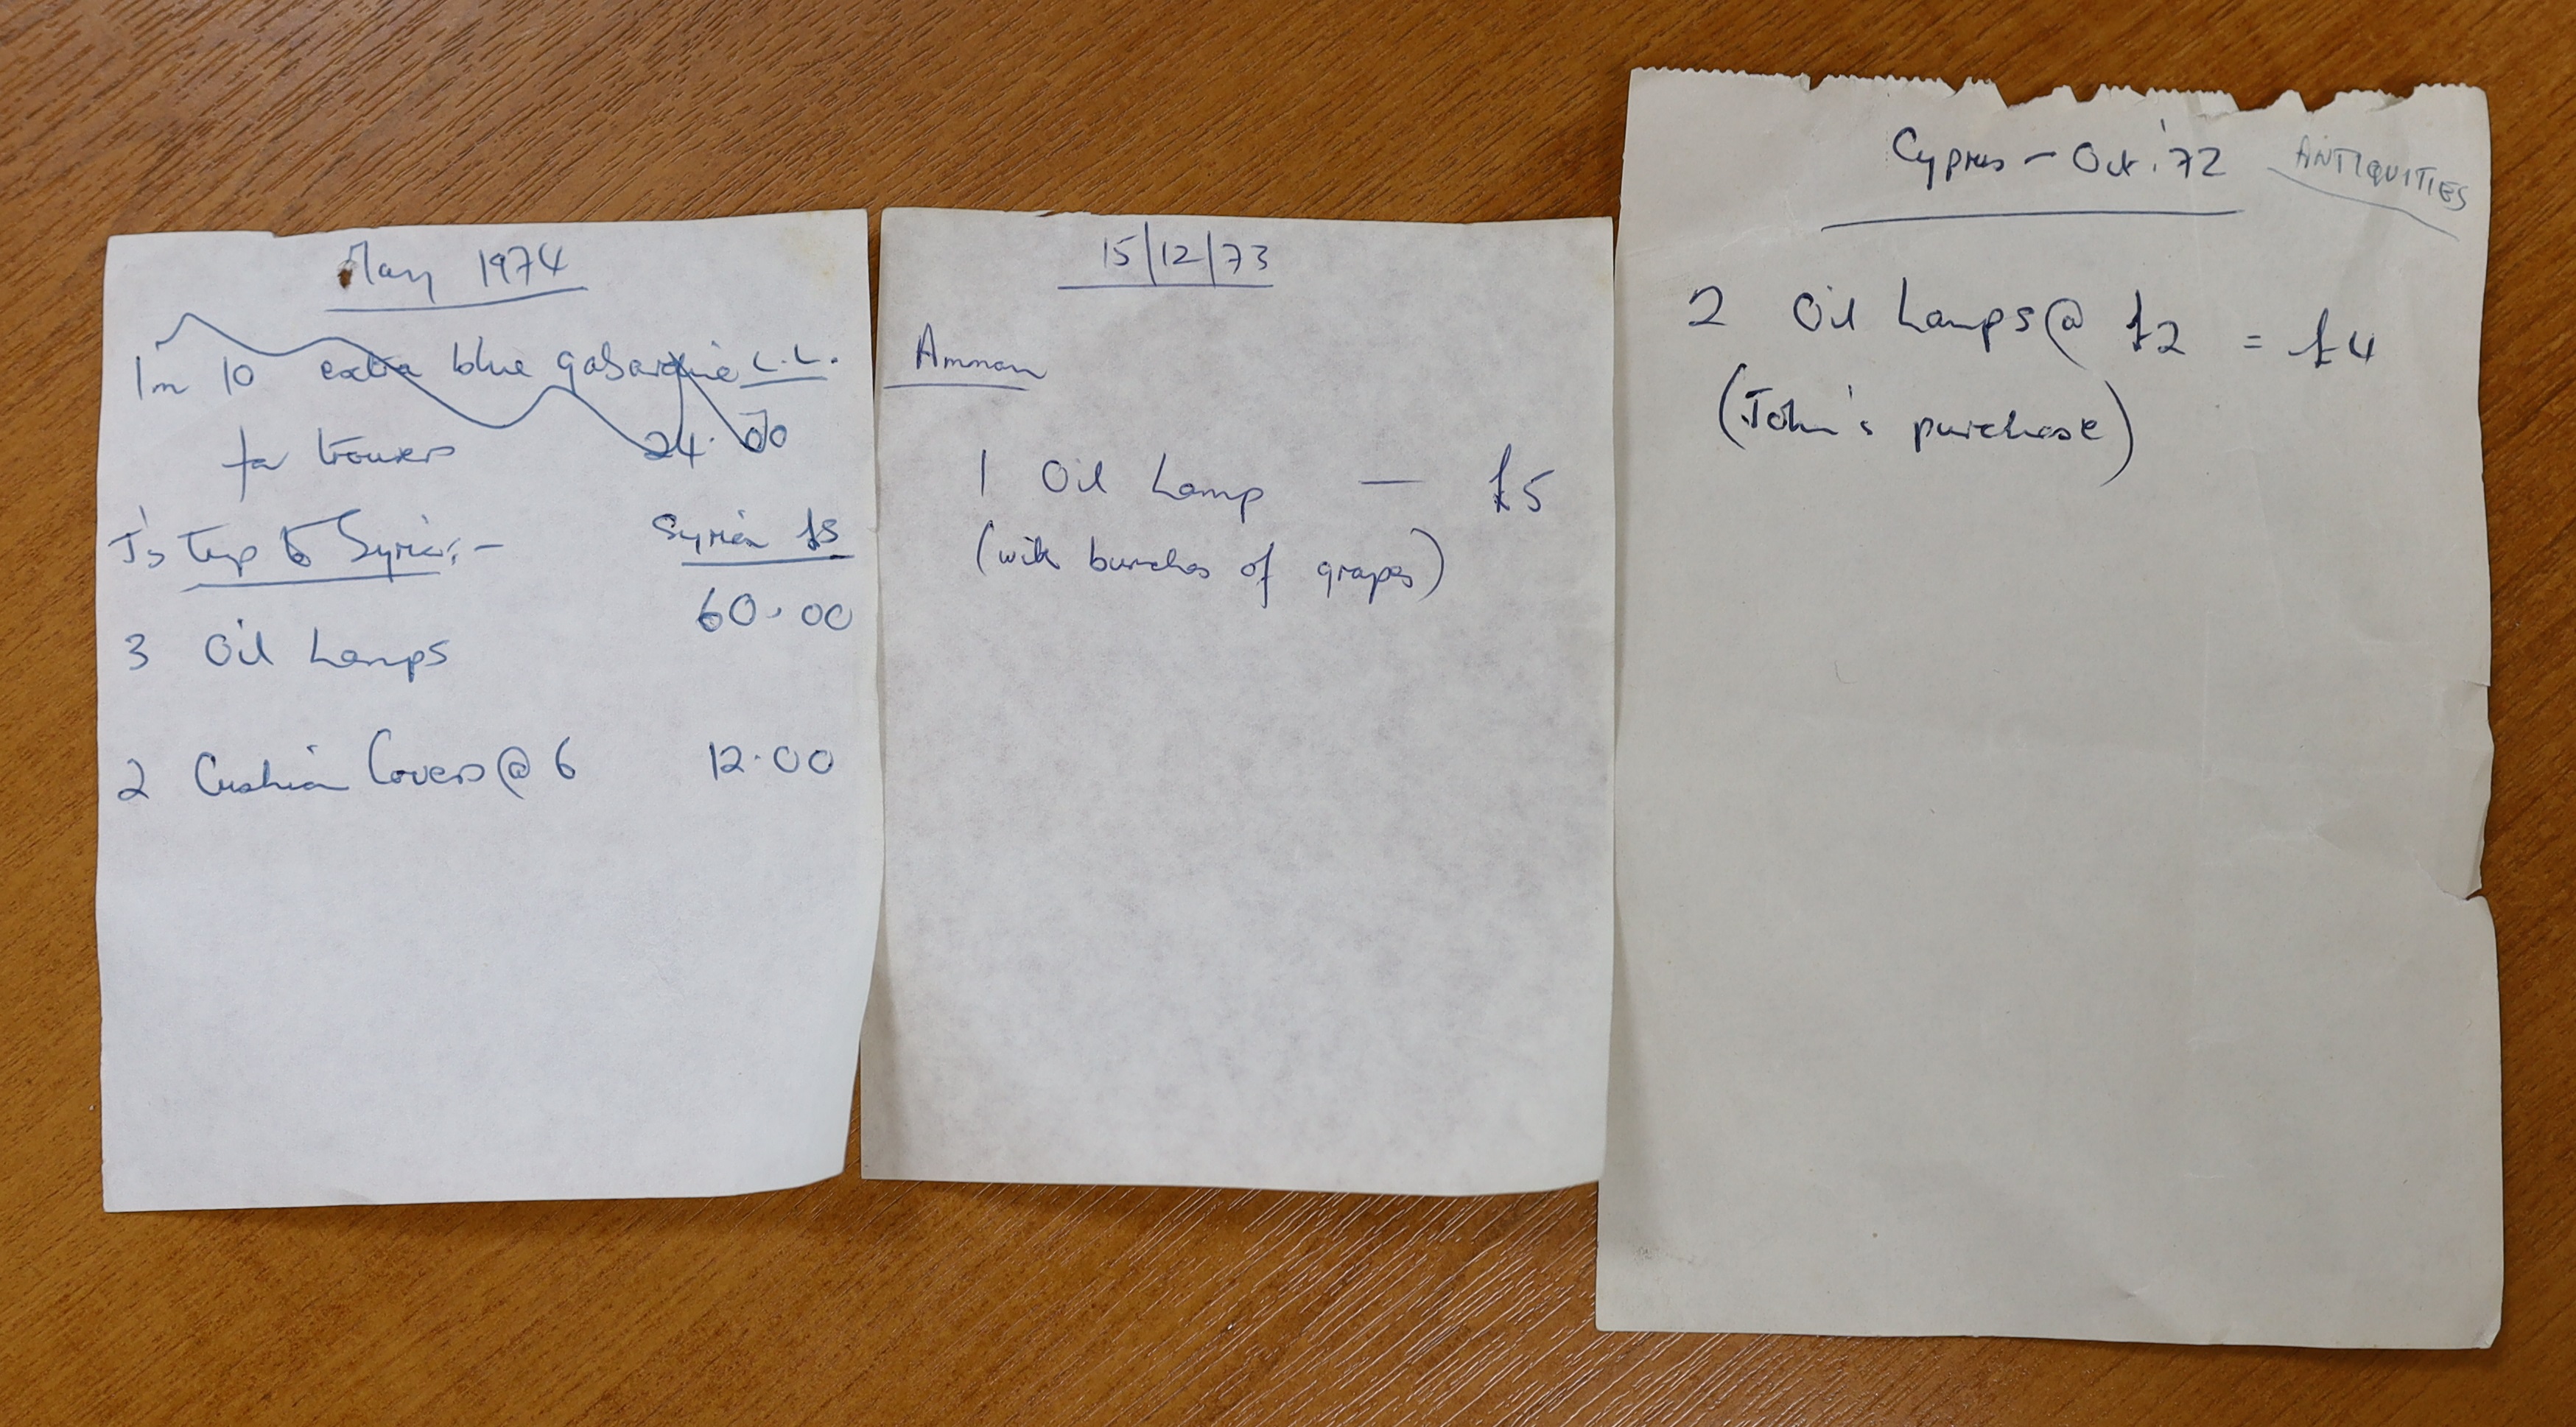 May 1974
1m 10 extra blue gabardine L.L.
for trousers 24.00
J's Trip to Syria:- Syrian £s
3 Oil Lamps 60.00
2 Cushion Covers @ 6 12.00
15/12/73
Amman
1 Oil Lamp — £5
(with bunches of grapes)
Cyprus - Oct. '72 ANTIQUITIES
2 Oil Lamps @ £2 = £4
(John's purchase)